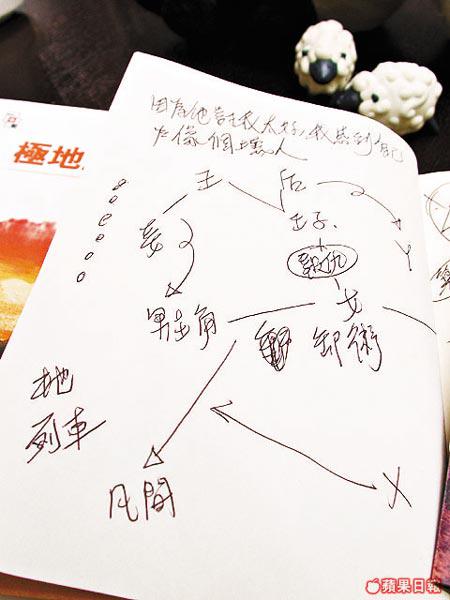 極地
因為他對我太好,我感到自己
像個壞人
王 后
王子
Y
報仇
男主角
女
卸術
地
列車
凡間
X
蘋果日報